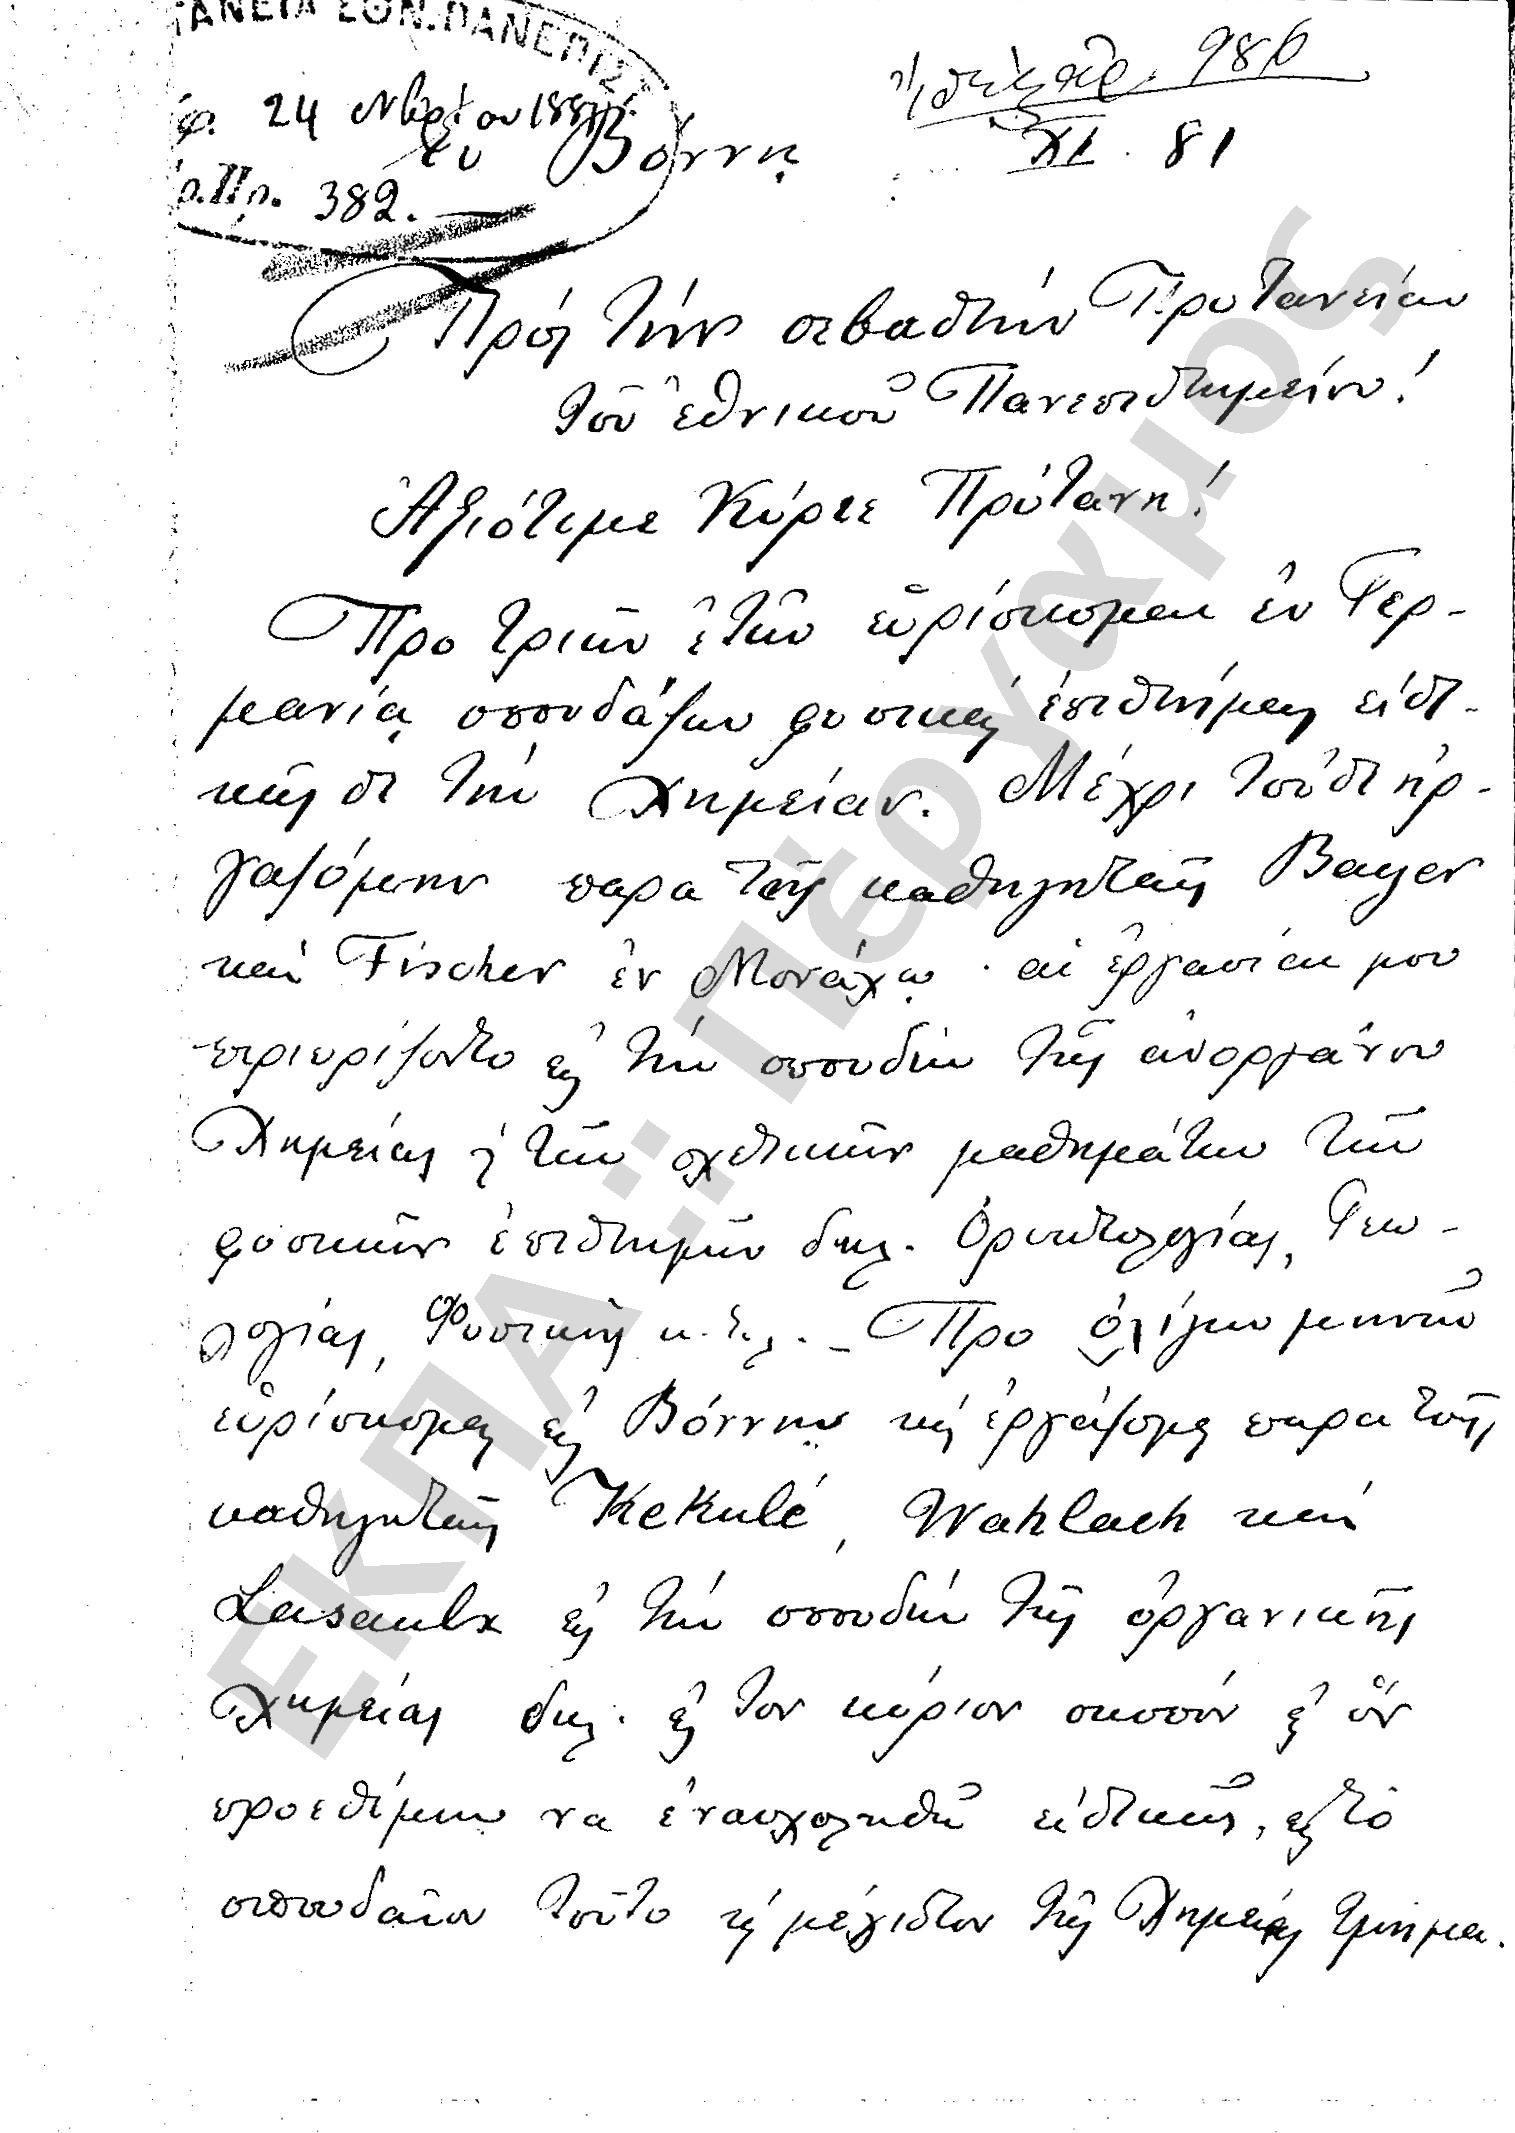 ΤΑΝΕΙΑ ΕΘΝ. ΠΑΝΕΠΙΣΤ
24 Νβρίου 188
Πρ. 382.
986
ἐν Βόννῃ
XI. 81
Πρός τήν σεβαστήν Πρυτανείαν
τοῦ ἐθνικοῦ Πανεπιστημείου!
Ἀξιότιμε Κύριε Πρύτανη!
Προ τριῶν ἐτῶν εὑρίσκομαι ἐν Γερ-
μανίᾳ σπουδάζων φυσικάς ἐπιστήμας εἰδι-
κῶς δε τήν Χημείαν. Μέχρι τοῦδε ἠρ-
γαζόμην παρα τοῖς καθηγηταῖς Bayer
καί Fischer ἐν Μονάχῳ · αἱ ἐργασίαι μου
περιωρίζοντο εἰς τήν σπουδήν τῆς ἀνοργάνου
Χημείας καί τῶν σχετικῶν μαθημάτων τῶν
φυσικῶν ἐπιστημῶν δηλ. Ὀρυκτολογίας, Γεω-
λογίας, Φυσικῆς κ.τ.λ. – Προ ὀλίγων μηνῶν
εὑρίσκομαι εἰς Βόννην καί ἐργάζομαι παρα τοῖς
καθηγηταῖς Kekulé, Wahlach καί
Lasaulx εἰς τήν σπουδήν τῆς ὀργανικῆς
Χημείας δηλ. εἰς τον κύριον σκοπόν εἰς ὅν
προεθέμην να ἐνασχοληθῶ εἰδικῶς, εἰς τὸ
σπουδαῖον τοῦτο καί μέγιστον τῆς Χημείας τμῆμα.
ΕΚΠΑ: Πέργαμος